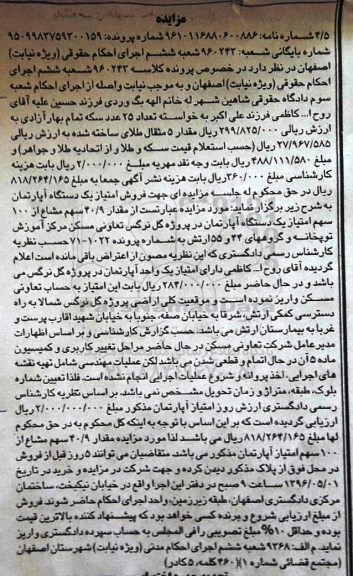 مزایده
۴/۵ شماره نامه: ۹۶۱۰۱۱۶۸۸۰۶۰۰۸۸۶ شماره پرونده: ۹۵۰۹۹۸۳۷۵۹۳۰۰۱۵۹
شماره بایگانی شعبه: ۹۶۰۲۴۳ شعبه ششم اجرای احکام حقوقی (ویژه نیابت)
اصفهان در نظر دارد در خصوص پرونده کلاسه ۹۶۰۲۴۳ شعبه ششم اجرای
احکام حقوقی (ویژه نیابت) اصفهان و به موجب نیابت واصله از اجرای احکام شعبه
سوم دادگاه حقوقی شاهین شهر له خانم الهه بگ وردی فرزند حسین علیه آقای
روح ا... کاظمی فرزند علی اکبر به خواسته تعداد ۲۵ عدد سکه تمام بهار آزادی به
ارزش ریالی ۲۹۹/۸۲۵/۰۰۰ ریال مقدار ۵ مثقال طلای ساخته شده به ارزش ریالی
۲۷/۹۶۷/۵۸۵ ریال (حسب استعلام قیمت سکه و طلا و از اتحادیه طلا و جواهر) و
مبلغ ۴۸۸/۱۱۱/۵۸۰ ریال بابت وجه نقد مهریه مبلغ ۲/۰۰۰/۰۰۰ ریال بابت هزینه
کارشناسی مبلغ ۳۶۰/۰۰۰ ریال بابت هزینه نشر آگهی جمعا به مبلغ ۸۱۸/۲۶۴/۱۶۵
ریال در حق محکوم له جلسه مزایده ای جهت فروش امتیاز یک دستگاه آپارتمان
به شرح زیر برگزار نماید. مورد مزایده عبارتست از مقدار ۴۰/۹ سهم مشاع از ۱۰۰
سهم امتیاز یک دستگاه آپارتمان در پروژه گل نرگس تعاونی مسکن مرکز آموزش
توپخانه و گروههای ۴۴ و ۵۵ ارتش به شماره پرونده ۱۰۲۲-۷۱ حسب نظریه
کارشناس رسمی دادگستری که این نظریه مصون از اعتراض باقی مانده است اعلام
گردیده آقای روح ا... کاظمی دارای امتیاز یک واحد آپارتمان در پروژه گل نرگس می
باشد و در حال حاضر مبلغ ۲۸۴/۰۰۰/۰۰۰ ریال بابت این امتیاز به حساب تعاونی
مسکن واریز نموده است و موقعیت کلی اراضی پروژه گل نرگس شمالا به راه
دسترسی کمکی ارتش، شرقا به خیابان صفه، جنوبا به خیابان شهید اقارب پرست و
غربا به بیمارستان ارتش می باشد. حسب گزارش کارشناسی و بر اساس اظهارات
مدیرعامل شرکت تعاونی مسکن در حال حاضر مراحل تغییر کاربری و کمیسیون
ماده ۵ آن در حال اتمام و قطعی شدن می باشد لکن عملیات مهندسی شامل تهیه نقشه
های اجرایی، اخذ پروانه و شروع عملیات اجرایی انجام نشده است. فلذا تعیین شماره
بلوک، طبقه، متراژ و زمان تحویل مشخص نمی باشد. بر اساس نظریه کارشناس
رسمی دادگستری ارزش روز امتیاز آپارتمان مذکور مبلغ ۲/۰۰۰/۰۰۰/۰۰۰ ریال
ارزیابی گردیده است که بر این اساس با توجه به اینکه کل محکوم به در حق محکوم
لها مبلغ ۸۱۸/۲۶۴/۱۶۵ ریال می باشد لذا مورد مزایده مقدار ۴۰/۹ سهم مشاع از
۱۰۰ سهم امتیاز آپارتمان مذکور می باشد. متقاضیان می توانند ۵ روز قبل از فروش
در محل فوق از پلاک مذکور دیدن کرده و جهت شرکت در مزایده و خرید در تاریخ
۱۳۹۶/۰۵/۰۱ ساعت ۹ صبح در دفتر این اجرا واقع در خیابان نیکبخت، ساختمان
مرکزی دادگستری اصفهان، طبقه زیرزمین، واحد اجرای احکام حاضر شوند. فروش
از مبلغ ارزیابی شروع و برنده کسی خواهد بود که پیشنهاد دهنده بالاترین قیمت
بوده و حداقل ۱۰% مبلغ تصویبی را فی المجلس به حساب سپرده دادگستری واریز
نماید. م الف: ۹۳۶۸ شعبه ششم اجرای احکام مدنی (ویژه نیابت) شهرستان اصفهان
(مجتمع قضائی شماره ۱) (۴۶۰ کلمه، ۵ کادر)